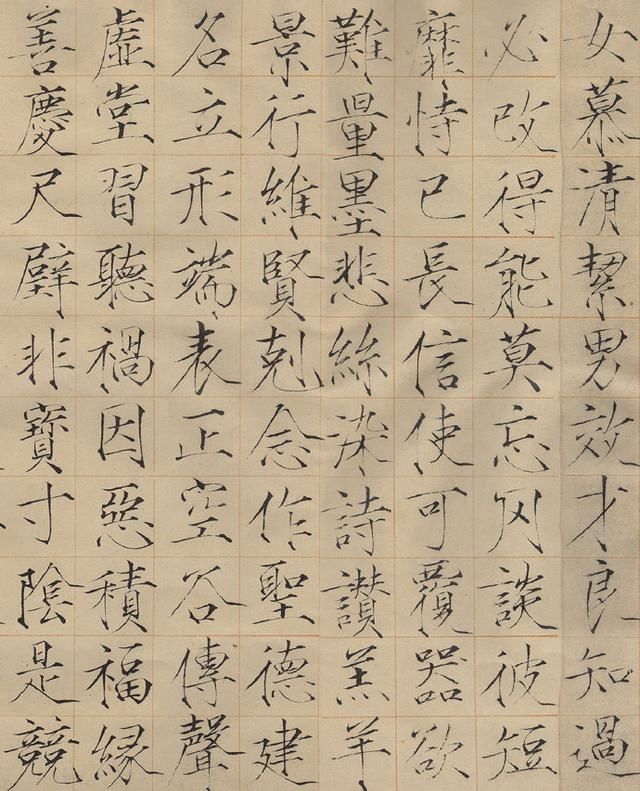 女慕清絜男效才良知過
必改得能莫忘罔談彼短
靡恃己長信使可覆器欲
難量墨悲絲染詩讚羔羊
景行維賢剋念作聖德建
名立形端表正空谷傳聲
虛堂習聽禍因惡積福緣
善慶尺璧非寶寸陰是競